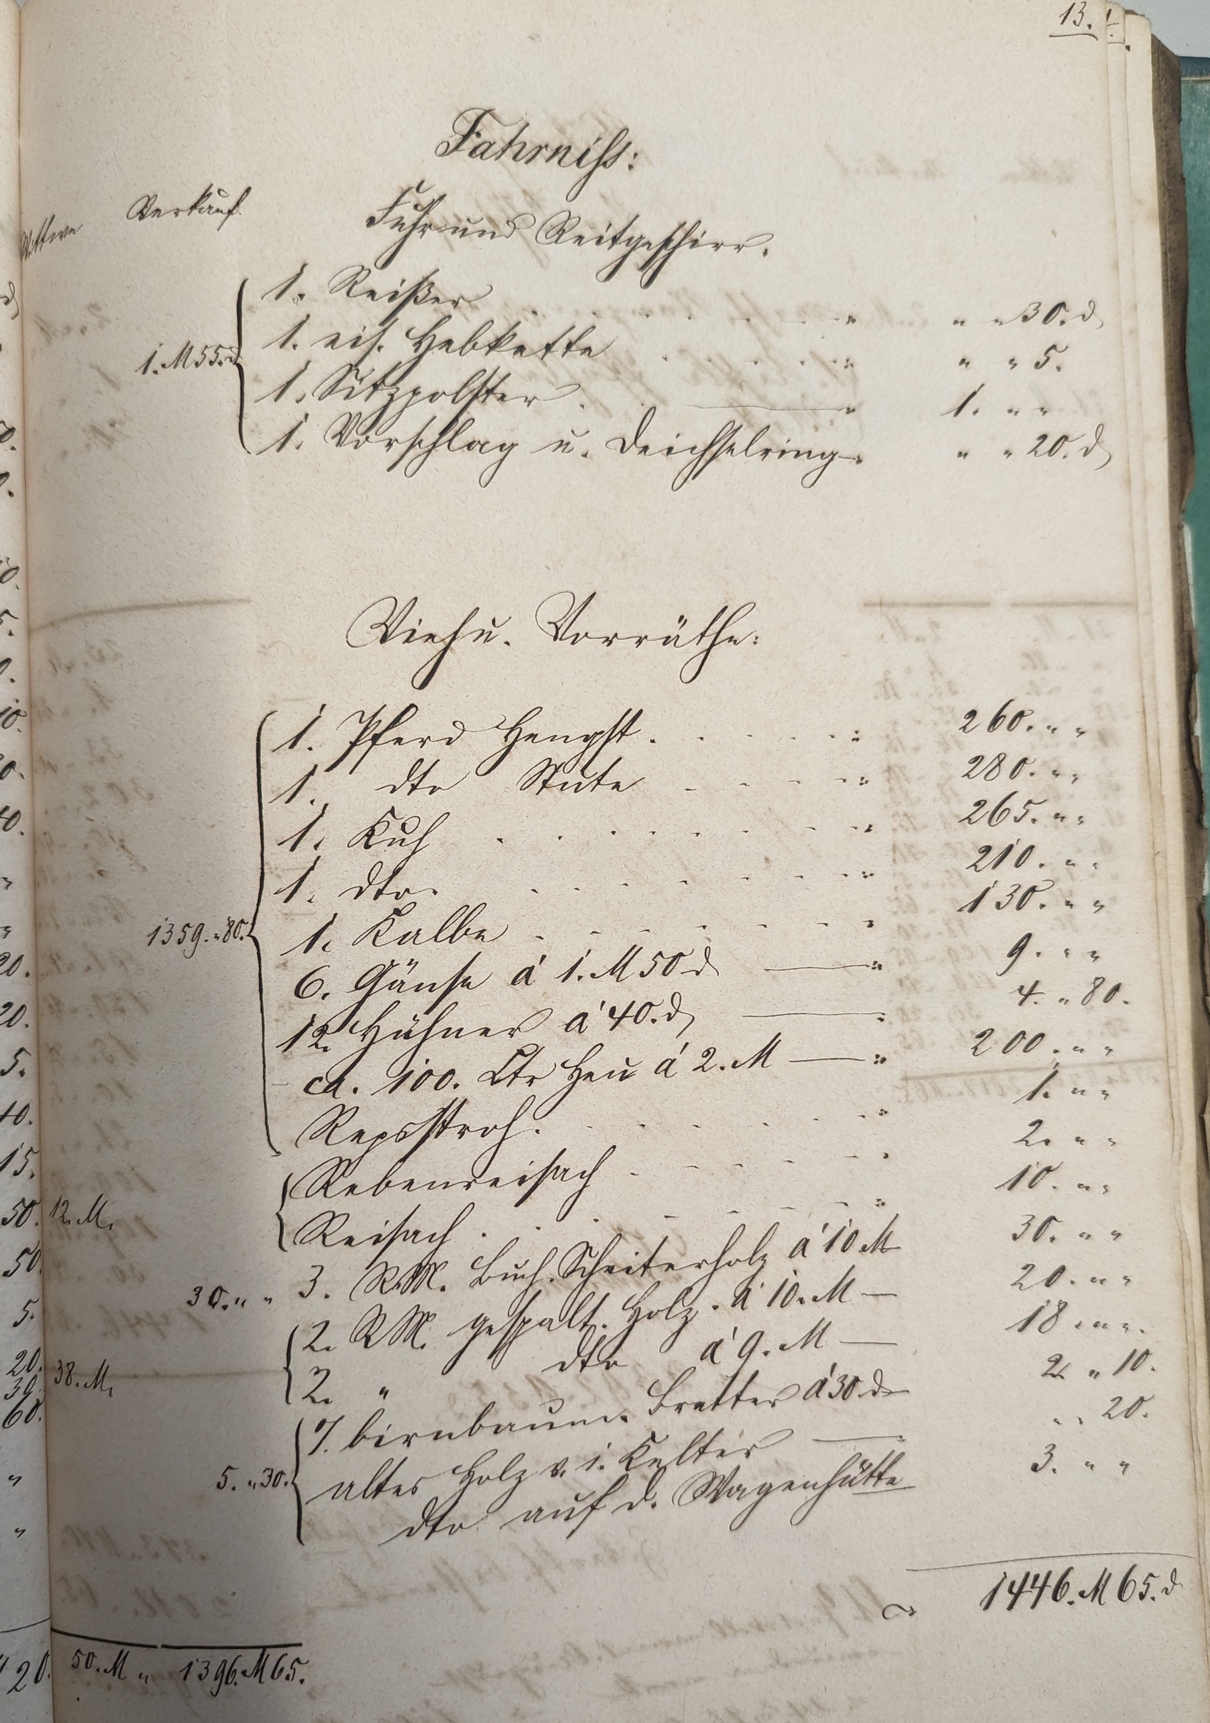 13.
Fahrniß:
Wittwe
Verkauf.
Fuhr und Reitgeschirr.
1. Reißer . . . . . " " " 30. d
1. eis. Hebkette . . . . " " " 5.
1. M 55. d
1. Sitzpolster . — " 1. " "
1. Vorschlag u. Deichselring " " " 20. d
Vieh u. Vorräthe:
1. Pferd Hengst . . . . . " 260. " "
1. dto Stute . . . . " 280. " "
1. Kuh . . . . . . " 265. " "
1. dto. . . . . . . " 210. " "
1359. " 80.
1. Kalbe . . . . . . " 130. " "
6. Gänse á 1. M 50 d — " 9. " "
12. Hühner á 40. d — " 4. " 80.
ca. 100. Ctr Heu á 2. M — " 200. " "
Repsstroh. . . . . . " 1. " "
Rebenreisach . . . . . " 2. " "
12. M.
Reisach . . . . . . " 10. " "
30. " "
3. RM. buch. Scheiterholz á 10 M 30. " "
2. RM. gespalt. Holz. á 10. M — 20. " "
38. M.
2. " dto á 9. M — 18. " "
7. birnbaum. Bretter á 30. d — 2. " 10.
5. " 30.
altes Holz v. i. Kelter — " " 20.
dto auf d. Wagenhütte 3. " "
1446. M 65. d
50. M " 1396. M 65.